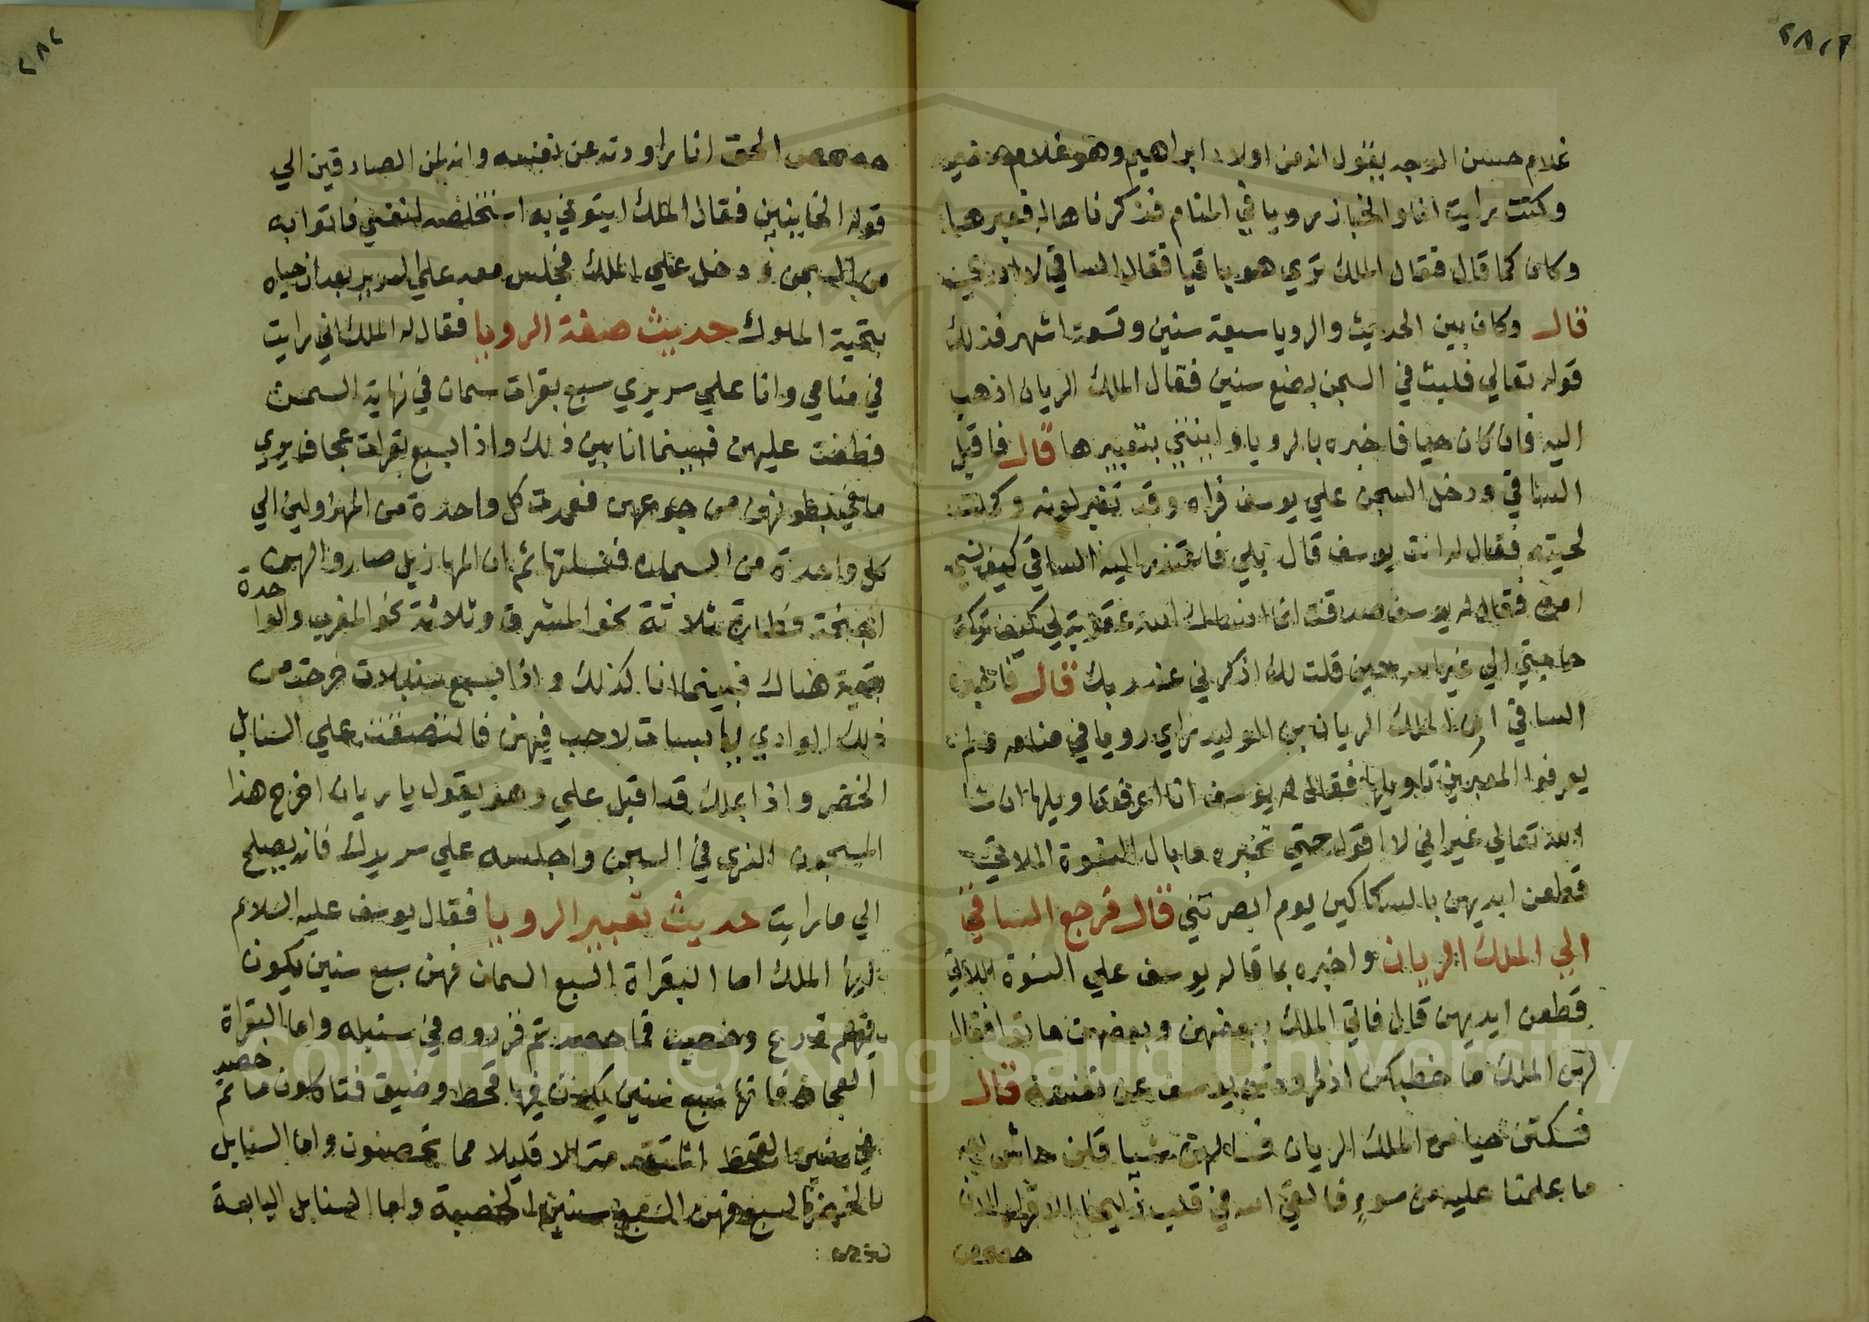 غلام حسن الوجه يقول انه من اولاد ابراهيم وهو غلام
وكنت رايت انا والخباز رويا في المنام فذكرناها له فعبرها
وكان كما قال فقال الملك تري هو باقيا فقال الساقي لا ادري
قال وكان بين الحديث والرويا سبعة سنين وتسعة اشهر فذلك
قوله تعالي فلبث في السجن بضع سنين فقال الملك الريان اذهب
اليه فان كان حيا فاخبره بالرويا وايتني بتعبيرها قال فاقبل
الساقي ودخل السجن علي يوسف فراه وقد تغير لونه وكملت
لحيته فقال له انت يوسف قال بلي فاعتذر اليه الساقي كيف نسي
امره فقال له يوسف صدقت انما انساك الله عقوبة لي كيف تركت
حاجتي الي غير الله حين قلت لك اذكرني عند ربك قال فاخبره
الساقي ان الملك الريان بن الوليد راي رويا في منامه ولم
يعرفوا المعبرين تاويلها فقال له يوسف انا اعرف تاويلها ان شا
الله تعالي غير اني لا اقول حتي تخبره ما بال النسوة الملاتي
قطعن ايديهن بالسكاكين يوم ابصرتني قال فرجع الساقي
الي الملك الريان واخبره بما قاله يوسف علي النسوة اللاتي
قطعن ايديهن قال فاتي الملك ببعضهن وبعضهن ماتوا فقال
لهن الملك ما خطبكن اذ راودتن يوسف عن نفسه قال
فسكتن حيا من الملك الريان فسالهن شيا قلن حاش لله
ما علمنا عليه من سوء فالقي الله في قلب زليخا الا قوله الان
حصحص
٢٨٢
حصحص الحق انا راودته عن نفسه وانه لمن الصادقين الي
قوله الخاينين فقال الملك ايتوني به استخلصه لنفسي فاتوا به
من السجن ودخل علي الملك فجلس معه علي السرير بعد ان حياه
بتحية الملوك حديث صفة الرويا فقال له الملك اني رايت
في منامي وانا علي سريري سبع بقرات سمان في نهاية السمن
فطفت عليهن فبينما انا بين ذلك واذا بسبع بقرات عجاف يري
ما في بطونهن من جوعهن فعمدت كل واحدة من المهزولين الي
كل واحدة من السمان ثم ان المهازيل صاروا لهن
اجنحة وطارة ثلاثة نحو المشرق وثلاثة نحو المغرب والواحدة
بقية هناك فبينما انا كذلك واذا بسبع سنبلات خرجت من
ذلك الوادي يابسات لا حب فيهن فالتصقت علي السنابل
الخضر واذا بملك قد اقبل علي وهو يقول يا ريان اخرج هذا
المسجون الذي في السجن واجلسه علي سريرك فانه يصلح
الي ما رايت حديث تعبير الرويا فقال يوسف عليه السلام
ايها الملك اما البقراة السبع السمان فهن سبع سنين يكون
فيهم تزرع وخصب فما حصد تم فزروه في سنبله واما البقراة
العجاف فانها سبع سنين يكون فيها قحط وضيق فتاكلون ما تم حصيد
في سنين القحط الا قليلا مما تحصنون واما السنابل
الخضر السبع فهن السبع سنين الخصبة واما السنابل اليابسة